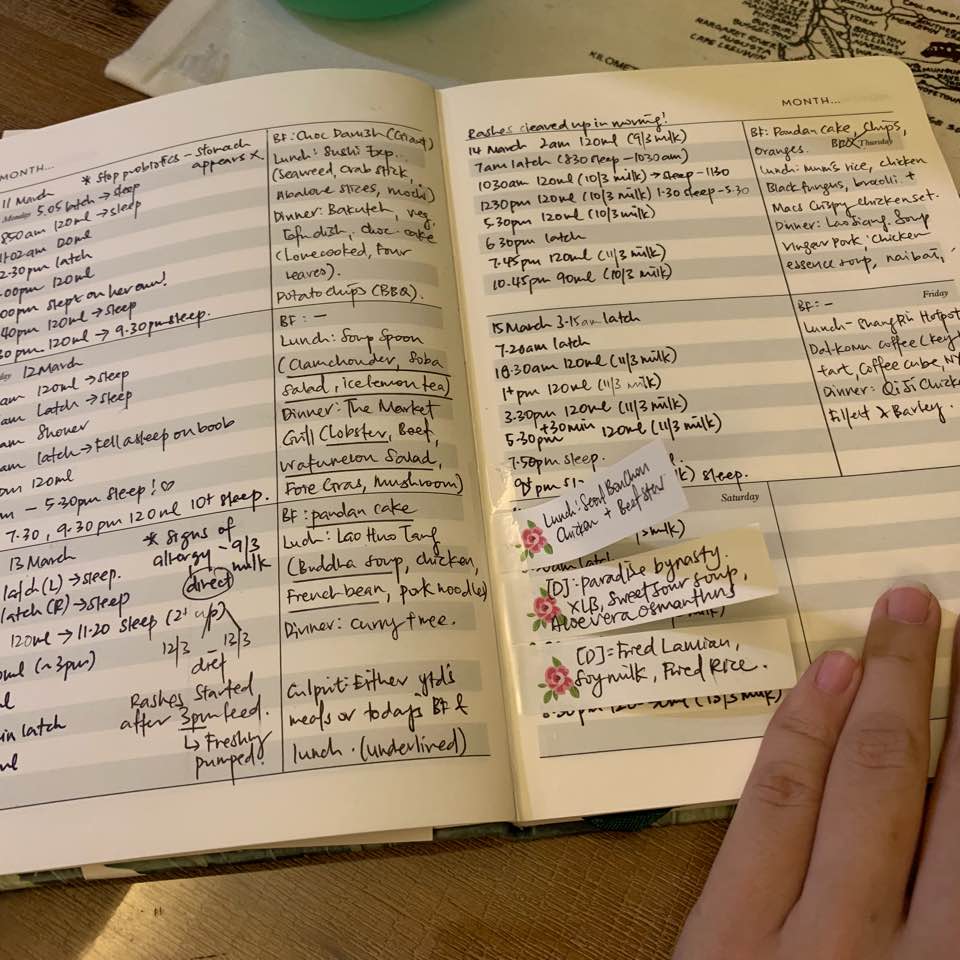 MONTH...
11 March * Stop probiotics - stomach
appears X
Monday 5.05 latch → sleep
850am 120ml → sleep
2.30pm latch
.00pm 120ml
00pm slept on her own!
40pm 120ml → sleep
30pm 120ml → 9.30pm sleep.
BF: Choc Danish (Giant)
Lunch: Sushi Exp..
(Seaweed, Crab stick,
Abalove slices, mochi)
Dinner: Bakuteh, veg,
Tofu dish, choc. cake
(Lovecooked, Four
leaves).
Potato chips (BBQ).
12 March
am 120ml → sleep
am Latch → sleep
am Shower
am latch → fell asleep on boob
pm 120ml
m - 5.30pm sleep! ♡
7.30, 9.30pm 120ml 10+ sleep.
BF: -
Lunch: Soup Spoon
(Clamchouder, Soba
Salad, ice lemon tea)
Dinner: The Market
Grill (lobster, Beef,
watermelon Salad,
Foie Gras, Mushroom)
13 March * Signs of
allergy - 9/3
milk
direct
latch (L) → sleep.
latch (R) → sleep
120ml → 11.20 sleep (2+ up)
12/3 12/3
ml (~3pm)
Rashes Started
after 3pm feed.
↳ Freshly
pumped!
in latch
BF: pandan cake
Luch: Lao Huo Tang
(Buddha soup, chicken,
French bean, pork noodles)
Dinner: Curry tree.
Culprit: Either ytd's
meals or today's BF &
lunch. (underlined)
MONTH...
Rashes cleared up in morning!
14 March 2am 120ml (9/3 milk)
7am latch (830 sleep - 1030am)
1030am 120ml (10/3 milk) → sleep - 1130
1230pm 120ml (10/3 milk) 1.30 sleep - 5.30
5.30pm 120ml (10/3 milk)
630pm latch
7.45pm 120ml (11/3 milk)
10.45pm 90ml (10/3 milk)
Thursday
BF: Pandan cake, chips,
oranges.
Lunch: Mum's rice, chicken
Black fungus, brocolli +
Macs Crispy chicken set.
Dinner: Lao Siang. Soup
Vingar pork, chicken
essence soup, naibai,
15 March 3.15am latch
7.20am latch
10.30am 120ml (11/3 milk)
1+pm 120ml (11/3 milk)
3.30pm 120ml (11/3 milk)
+30min
5.30pm 120ml (11/3 milk)
7.50pm sleep.
9+pm
milk) sleep.
Friday
BF: -
Lunch - Shangri Hotpot
Dal.komm coffee (key
tart, coffee cube, NY
Dinner: Qiji Chicke
Fillet X Barley.
Saturday
Lunch: Seoul BonChon
Chicken + Beef stew
[D]: paradise bynasty.
XLB, Sweet sour soup,
Aloe vera osmanthus
[D] = Fred Lamian,
Soymilk, Fried Rice.
KILOMET
MARGARET RIVER
AUGUSTA
CAPE LEEUWIN